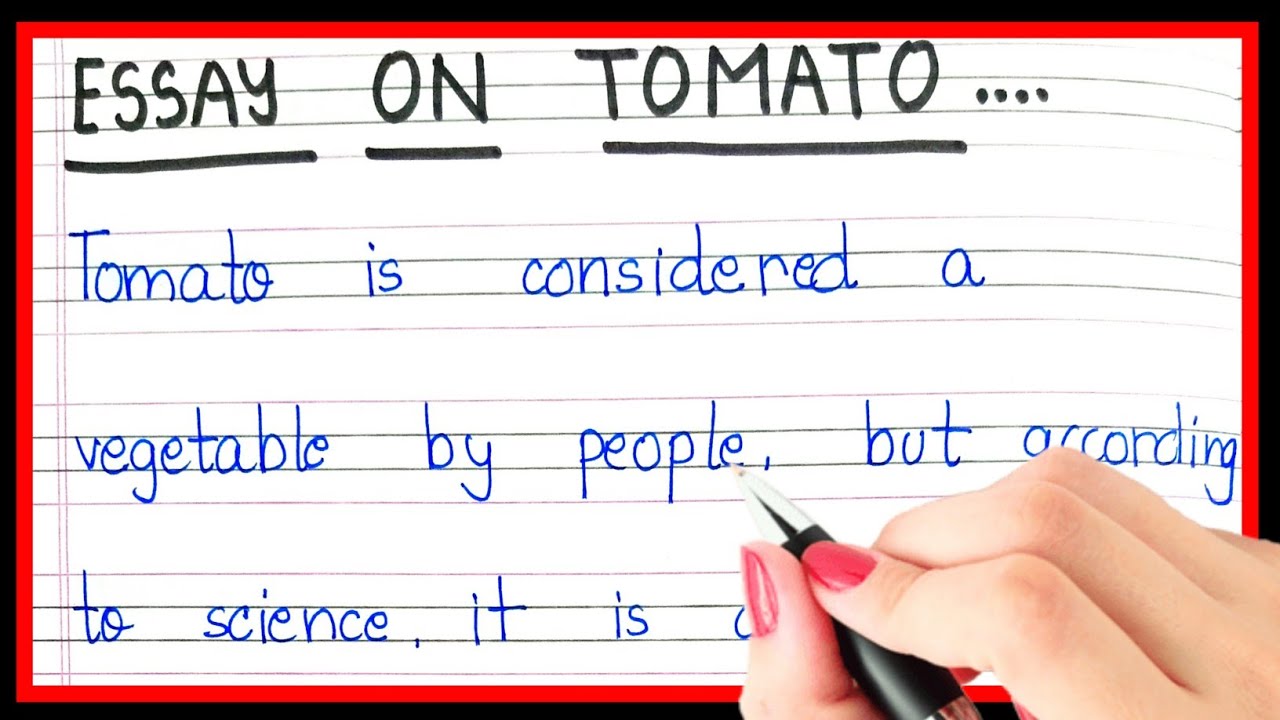 ESSAY ON TOMATO ....
Tomato is considered a
vegetable by people, but according
to science, it is